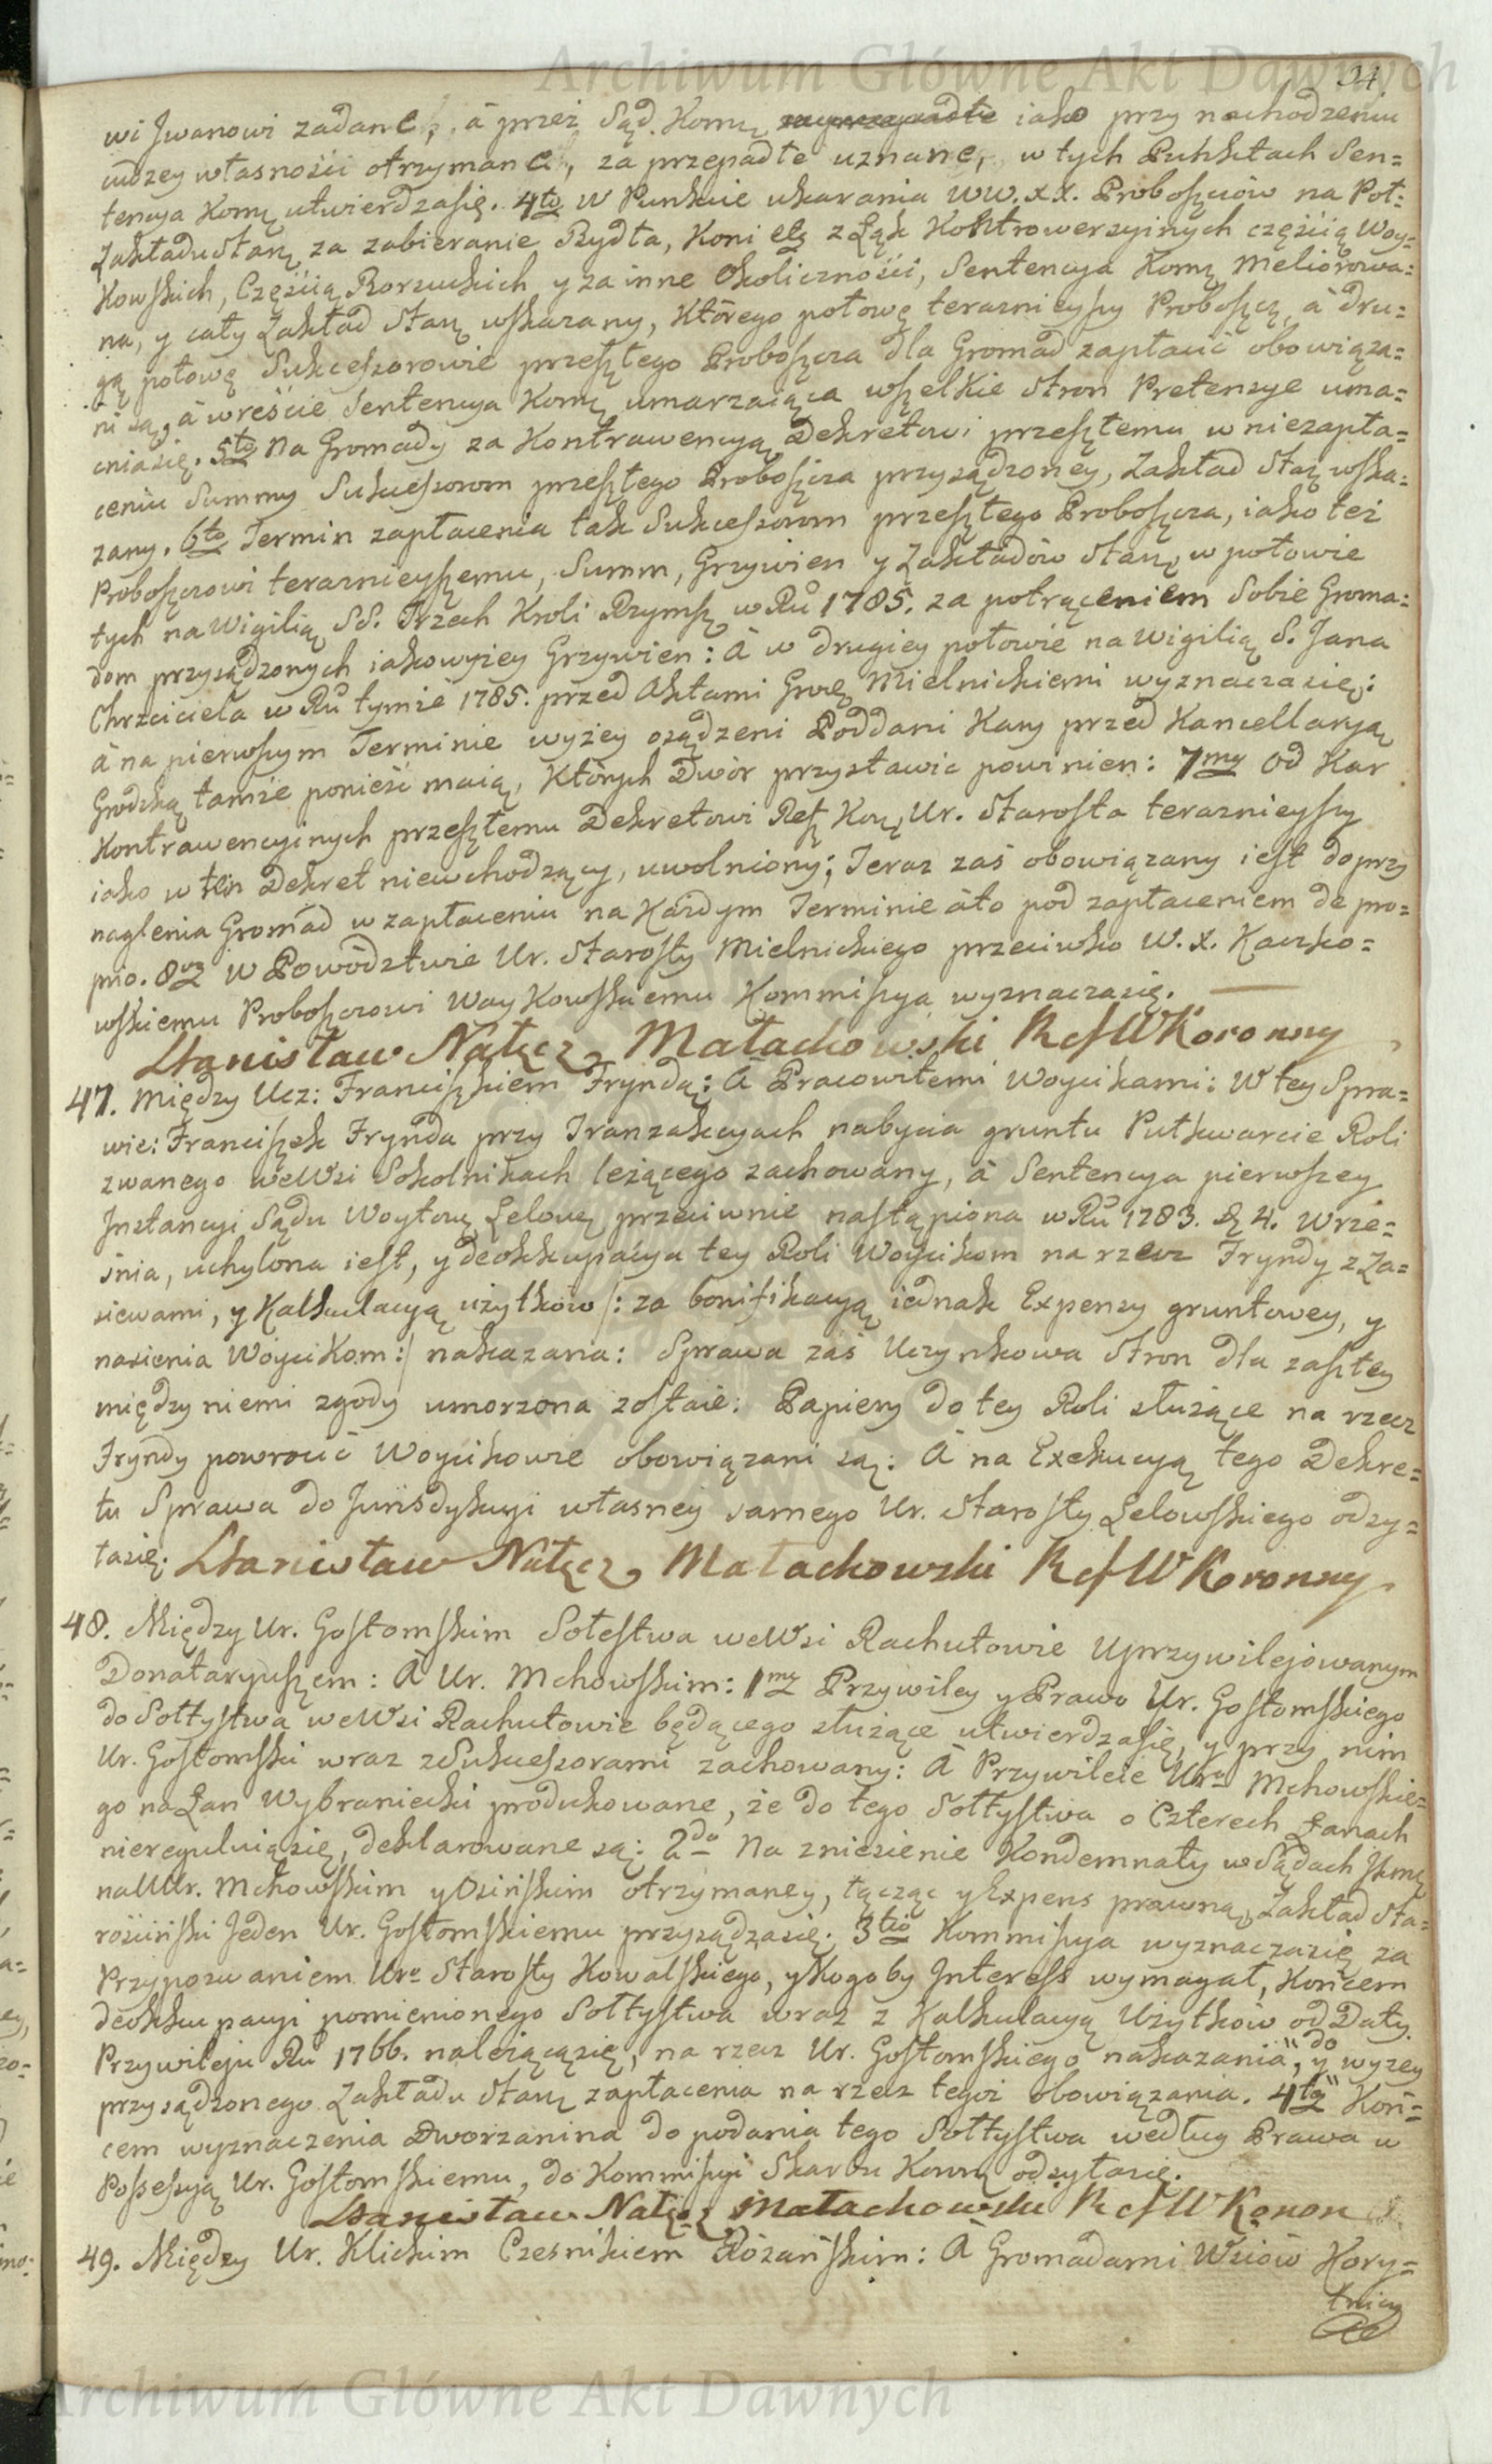 Archiwum Główne Akt Dawnych
94.
wi Jwanowi zadane, á przez Sąd Komỹ zaprzepadłe iako przy nachodzeniu
cudzey własności otrzymane, za przepadłe uznane, w tych Punktach Sen=
tencya Komỹ utwierdzasię. 4to W Punkcie ukarania WW. XX. Proboszczów na Poł=
Zakładu Staỹ za zabieranie Bydła, Koni etc z Łąk Kontrowersyinych częścią Woy=
Kowskich, Częścią Borsukich y za inne Okoliczności, Sentencya Komỹ Meliorowa=
na, y cały Zakład Staỹ wskazany, Którego połowę teraznieyszy Proboszcz, à dru=
gą połowę Sukcessorowie przeszłego Proboszcza dla Gromad zapłacić obowiąza=
ni są, à wreście Sentencya Komỹ umarzaiąca wszelkie Stron Pretensye uma=
cniasię. 5to Na Gromady za Kontrawencyą Dekretowi przeszłemu w niezapła=
ceniu Summy Sukcessorom przeszłego Proboszcza przysądzoney, Zakład Staỹ wska=
zany. 6to Termin zapłacenia tak Sukcessorom przeszłego Proboszcza, iako też
Proboszczowi teraznieyszemu, Summ, Grzywien y Zakładów Staỹ, w połowie
tych na Wigilią SS. Trzech Kroli Rzymsỹ w Ru 1785. za potrąceniem Sobie Groma=
dom przysądzonych iakowyżey Grzywien: À w drugiey połowie na Wigilią S. Jana
Chrzciciela w Ru tymże 1785. przed Aktami Grodỹ Mielnickiemi wyznaczasię:
à na pierwszym Terminie wyżey osądzeni Poddani Kary przed Kancellaryą
Grodzką tamże ponieść maią, Których Dwór przystawić powinien: 7my Od Kar
Kontrawencyinych przeszłemu Dekretowi Refỹ Koỹ, Ur. Starosta teraznieyszy
iako w ten Dekret niewchodzący, uwolniony; Teraz zaś obowiązany iest do przy
naglenia Gromad w zapłaceniu na Każdym Terminie àto pod zapłaceniem de pro=
prio. 8vo W Powództwie Ur. Starosty Mielnickiego przeciwko W. X. Kaczko=
wskiemu Proboszczowi Woykowskiemu Kommissya wyznaczasię.
Stanisław Nałęcz Małachowski RefWKoronny
47. Między Ucz: Franciszkiem Fryndą: À Pracowitemi Woycikami: W tey Spra=
wie: Franciszek Frynda przy Tranzakcyach nabycia gruntu Pułkwarcie Roli
zwanego weWsi Sokolnikach leżącego zachowany, à Sentencya pierwszey
Jnstancyi Sądu Woytowỹ Lelowỹ przeciwnie nastąpiona w Ru 1783. D. 4. Wrze=
śnia, uchylona iest, y deokkupacya tey Roli Woycikom na rzecz Fryndy z Za=
siewami, y Kalkulacyą użytków /: za bonifikacyą iednak Expensy gruntowey, y
nasienia Woycikom:/ nakazana: Sprawa zaś Uczynkowa Stron dla zaszłey
między niemi zgody umorzona zostaie: Papiery do tey Roli służące na rzecz
Fryndy powrocić Woycikowie obowiązani są: À na Exekucyą tego Dekre=
tu Sprawa do Jurisdykcyi własney samego Ur. Starosty Lelowskiego odsy=
łasię. Stanisław Nałęcz Małachowski RefWKoronny
48. Między Ur. Gostomskim Sołestwa weWsi Rachutowie Uprzywilejowanym
Donataryuszem: À Ur. Mchowskim: 1mo Przywiley y Prawo Ur. Gostomskiego
do Sołtystwa weWsi Rachutowie będącego służące utwierdzasię, y przy nim
Ur. Gostomski wraz z Sukcessorami zachowany: À Przywileie Uro Mchowskie=
go na Łan Wybraniecki produkowane, że do tego Sołtystwa o Czterech Łanach
niereguluiąsię, deklarowane są: 2do Na zniesienie Kondemnaty w Sądach Jkmỹ
na UUr. Mchowskim y Osińskim otrzymaney, łącząc y Expens prawną, Zakład Sta=
rościński Jeden Ur. Gostomskiemu przysądzasię; 3tio Kommissya wyznaczasię za
Przypozwaniem Uro Starosty Kowalskiego, y Kogoby Jnteress wymagał, Koncem
deokkupacyi pomienionego Sołtystwa wraz z Kalkulacyą Użytków od Daty
Przywileju Ru 1766. należącąsię, na rzecz Ur. Gostomskiego nakazania, y do wyżey
przysądzonego Zakładu Staỹ zapłacenia na rzecz tegoż obowiązania. 4to Koń=
cem wyznaczenia Dworzanina do podania tego Sołtystwa według Prawa w
Possessyą Ur. Gostomskiemu, do Kommissyi Skarbu Koronỹ odsyłasię.
Stanisław Nałęcz Małachowski RefWKoron
49. Między Ur. Klickim Czesnikiem Różańskim: À Gromadami Wsiów Kory=
tnicy
Archiwum Główne Akt Dawnych